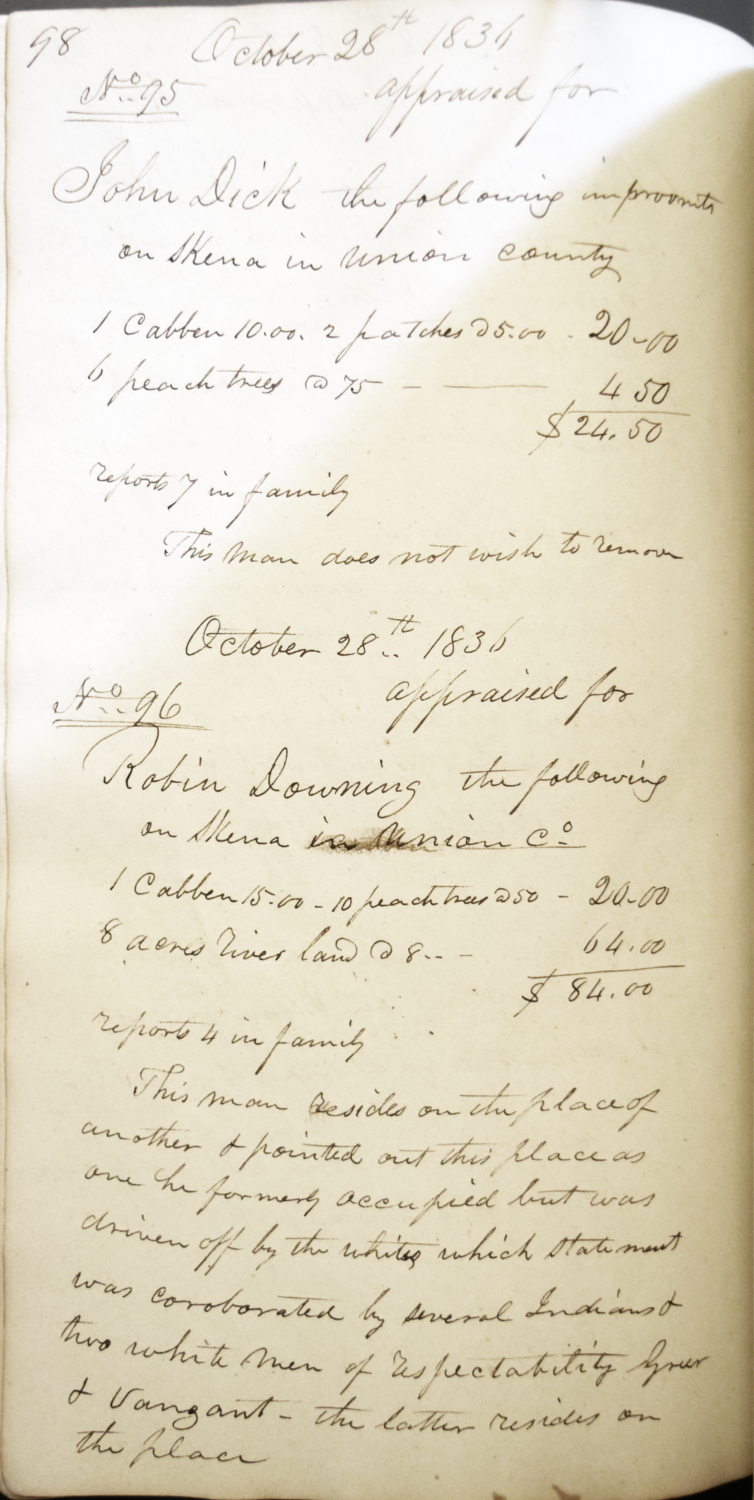 98 October 28th 1836
No. 95 appraised for
John Dick the following improvmts
on Skena in Union county
1 Cabben 10.00. 2 patches @ 5.00 - 20-00
6 peach trees @ 75 - — 4 50
$24.50
reports 7 in family
This man does not wish to remove
October 28th 1836
No. 96 appraised for
Robin Downing the following
on Skena in Union Co
1 Cabben 15.00 - 10 peach trees @ 50 - 20-00
8 acres river land @ 8.. - 64.00
$ 84.00
reports 4 in family
This man resides on the place of
another & pointed out this place as
one he formerly occupied but was
driven off by the whites which statement
was coroborated by several Indians &
two white men of respectability Greer
& Vangant - the latter resides on
the place